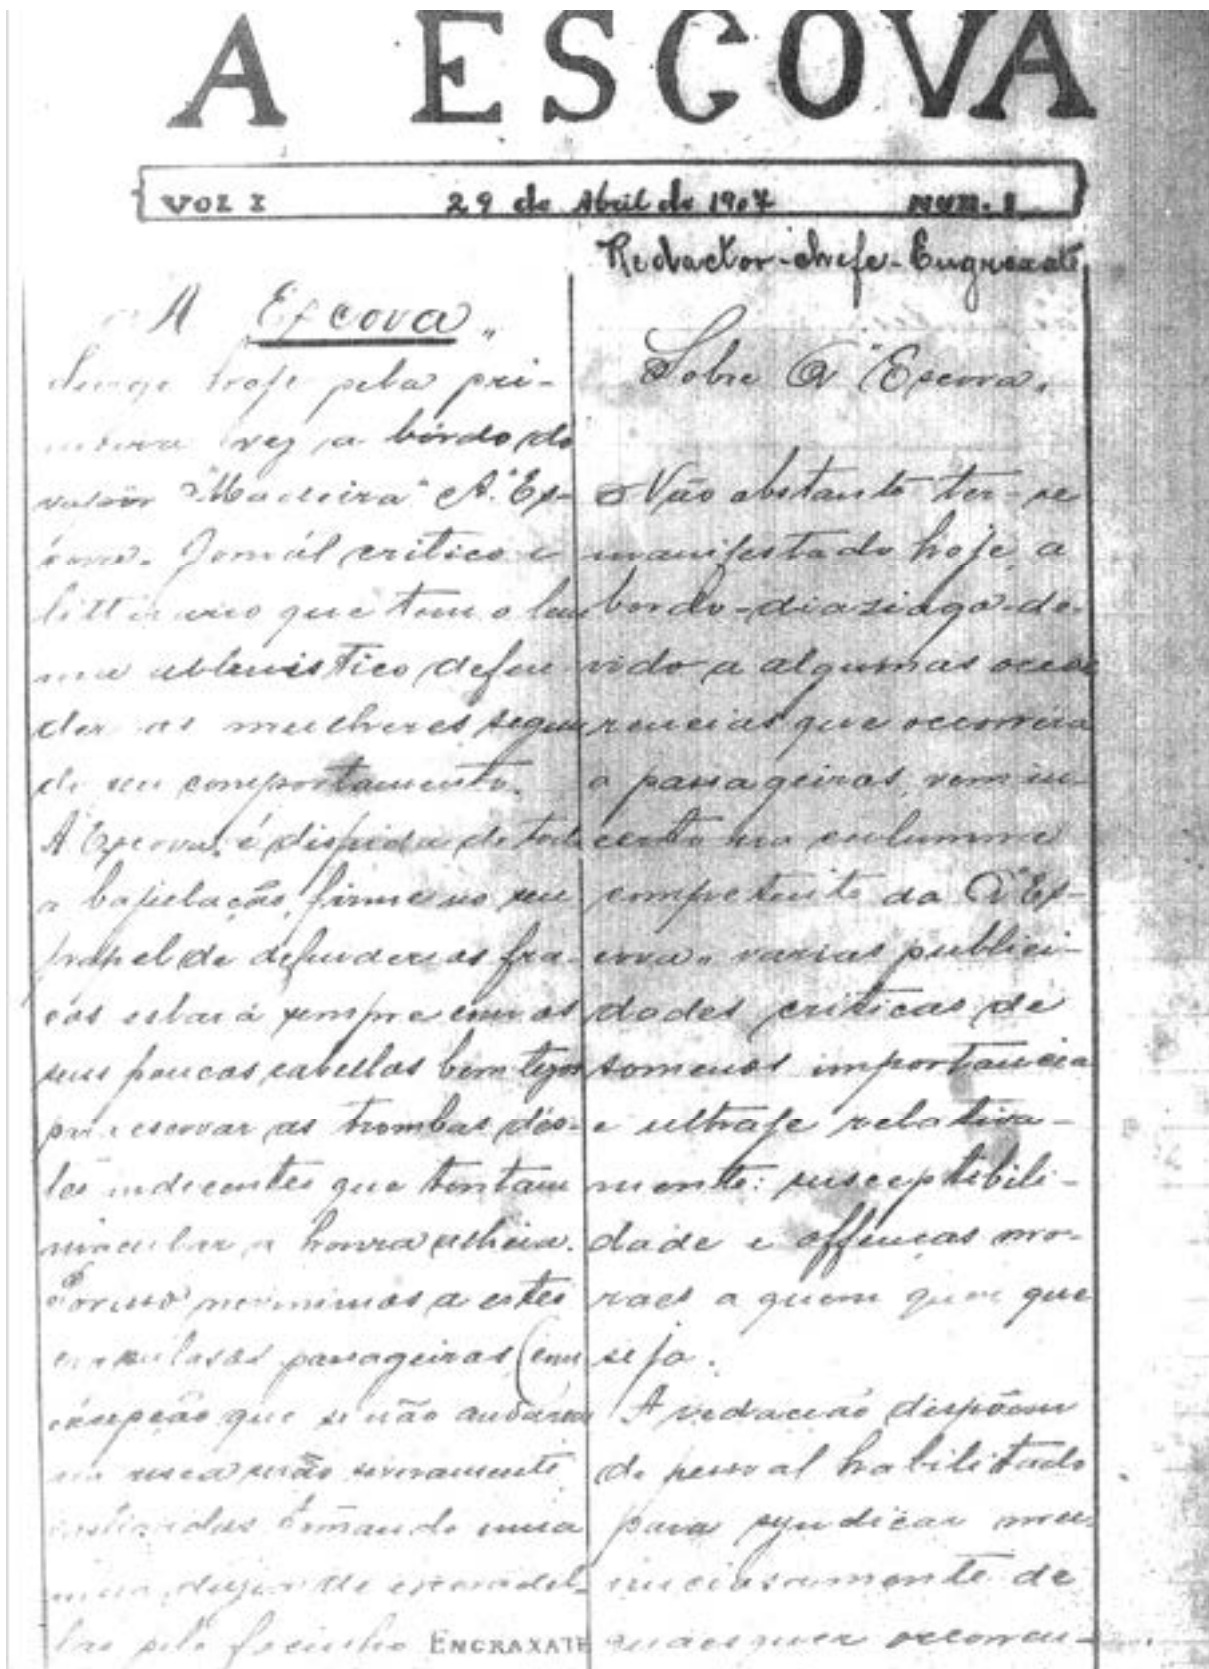 A ESCOVA
VOL I 29 de Abril de 1907 NUM. 1
Redactor-chefe-Engraxate
A Escova"
Surge hoje pela pri-
meira vez a bórdo do
vapor "Madeira" A "Es-
cova. Jornál critico e
litterario que tem o
defen-
der as mulheres segun
do seu comportamento.
A Escova, é despida de toda
a bajulação, firme no seu
papel de defender os fra-
cos estará sempre com os
seus poucos cabellos bem
para escovar as trombas dés-
tes indecentes que tentam
macular a honra alheia.
Porisso prevenimos a estes
passageiros (com
que se não andárem
na serão severamente
uma
pelo focinho ENGRAXATE
Sobre A "Escova"
Não obstante ter-se
manifestado hoje, a
bordo-dia aziago-de-
vido a algumas occor
rencias que occorreu
a passageiros, vem in-
certo na columna
competente da A "Es-
cova" varias publici-
dades criticas de
somenos importancia
e ultraje relativa-
mente: susceptibili-
dade e offenças mo-
raes a quem quer que
seja.
A redacção dispõem
de pessoal habilitado
para syndicar mi-
nuciosamente de
quaesquer occorren-